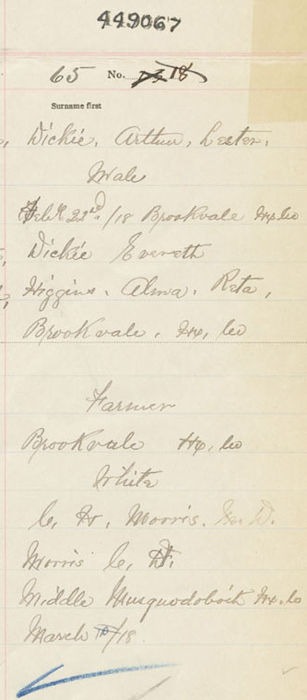 449067
65 No. 18
Surname first
Dickie, Arthur, Lester,
Male
Feb'y 22nd/18 Brookvale Hx. Co
Dickie Everett
Higgins, Alma, Reta,
Brookvale, Hx, Co
Farmer
Brookvale Hx, Co
White
C, H, Morris, M. D.
Morris C, H.
Middle Musquodoboit Hx. Co
March /18